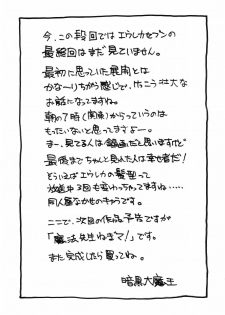 今、この段階ではエウレカセブンの
最終回はまだ見ていません。
最初に思っていた展開とは
かな〜りちがう感じで、けっこう壮大な
お話になってますね。
朝の7時(関東)からっていうのは
もったいないと思ってますよー。
まー、見てる人は録画だと思いますけど
最後までちゃんと見れた人は幸せ者だ!
どういえばエウレカの髪型って
放送中3回も変わっちゃってますね……
同人屋なかせのキャラです。
ここで、次回の作品予告ですが
「魔法先生ねぎま!」です。
また完成したら買ってね。
暗黒大魔王